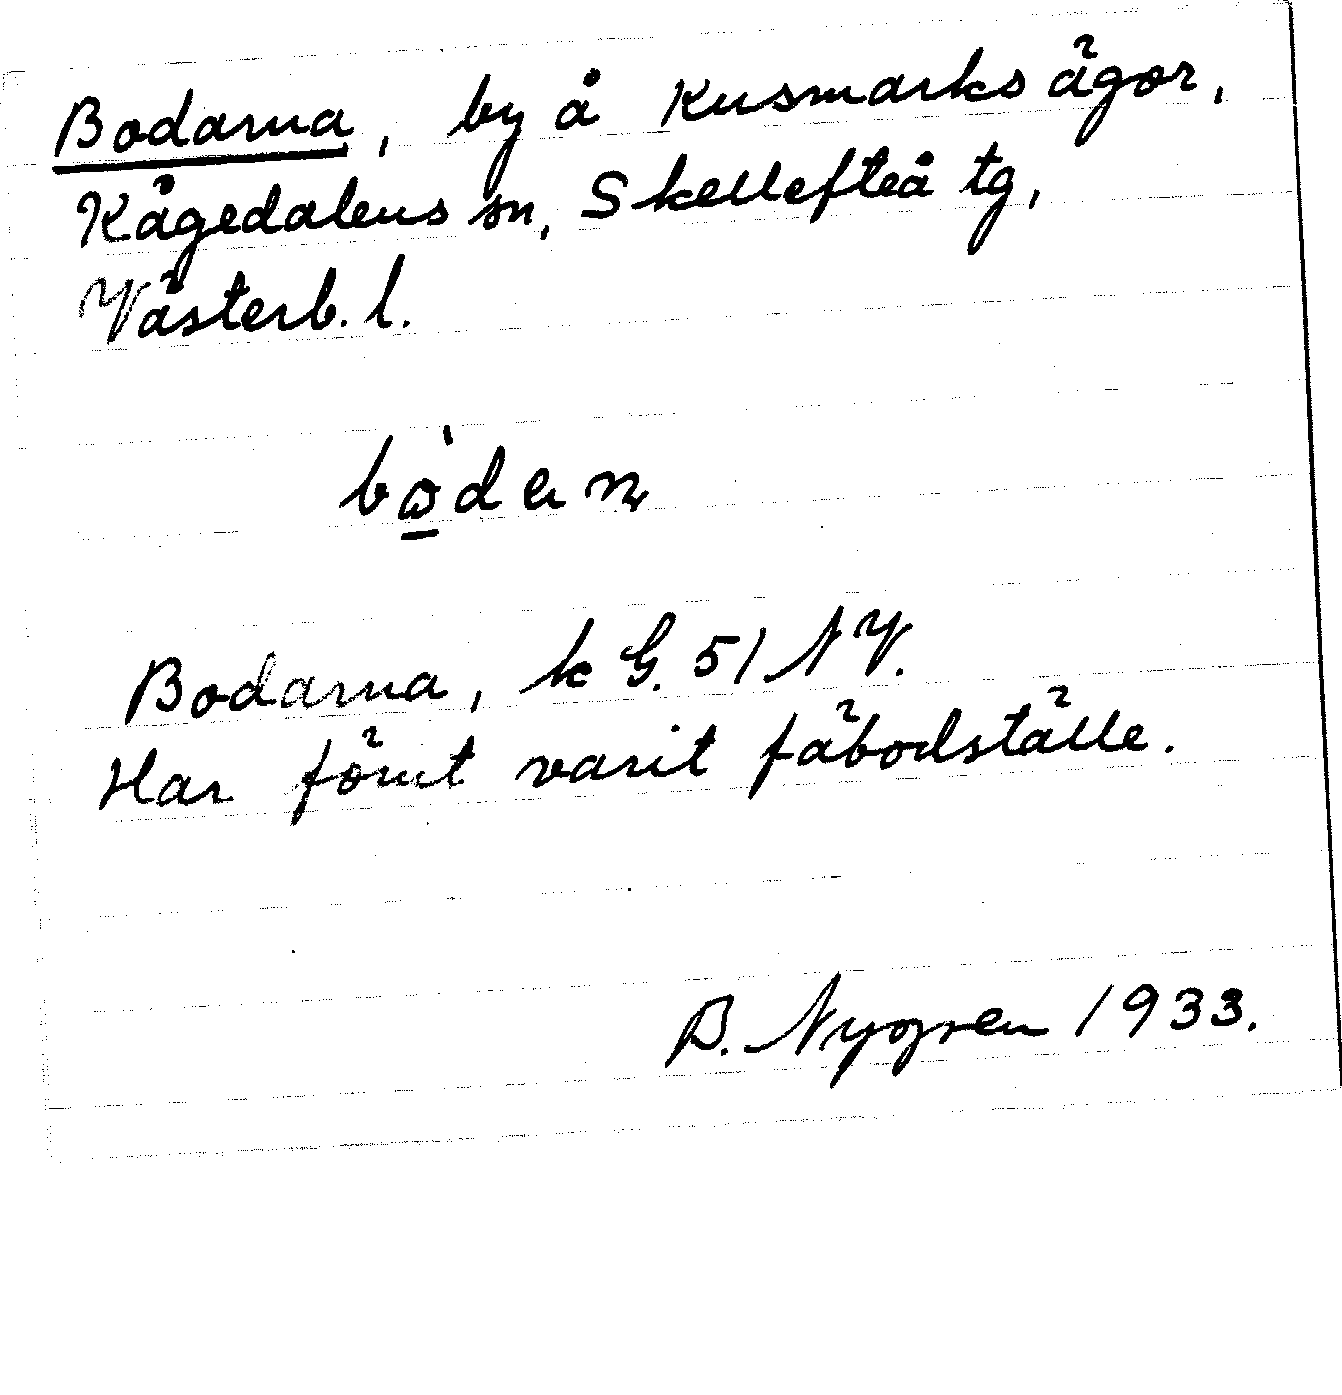 Bodarna, by å Kusmarks ägor,
Kågedalens sn, Skellefteå tg,
Västerb. l.
Bodarna, k G. 51 NV.
Har förut varit fäbodställe.
B. Nygren 1933.